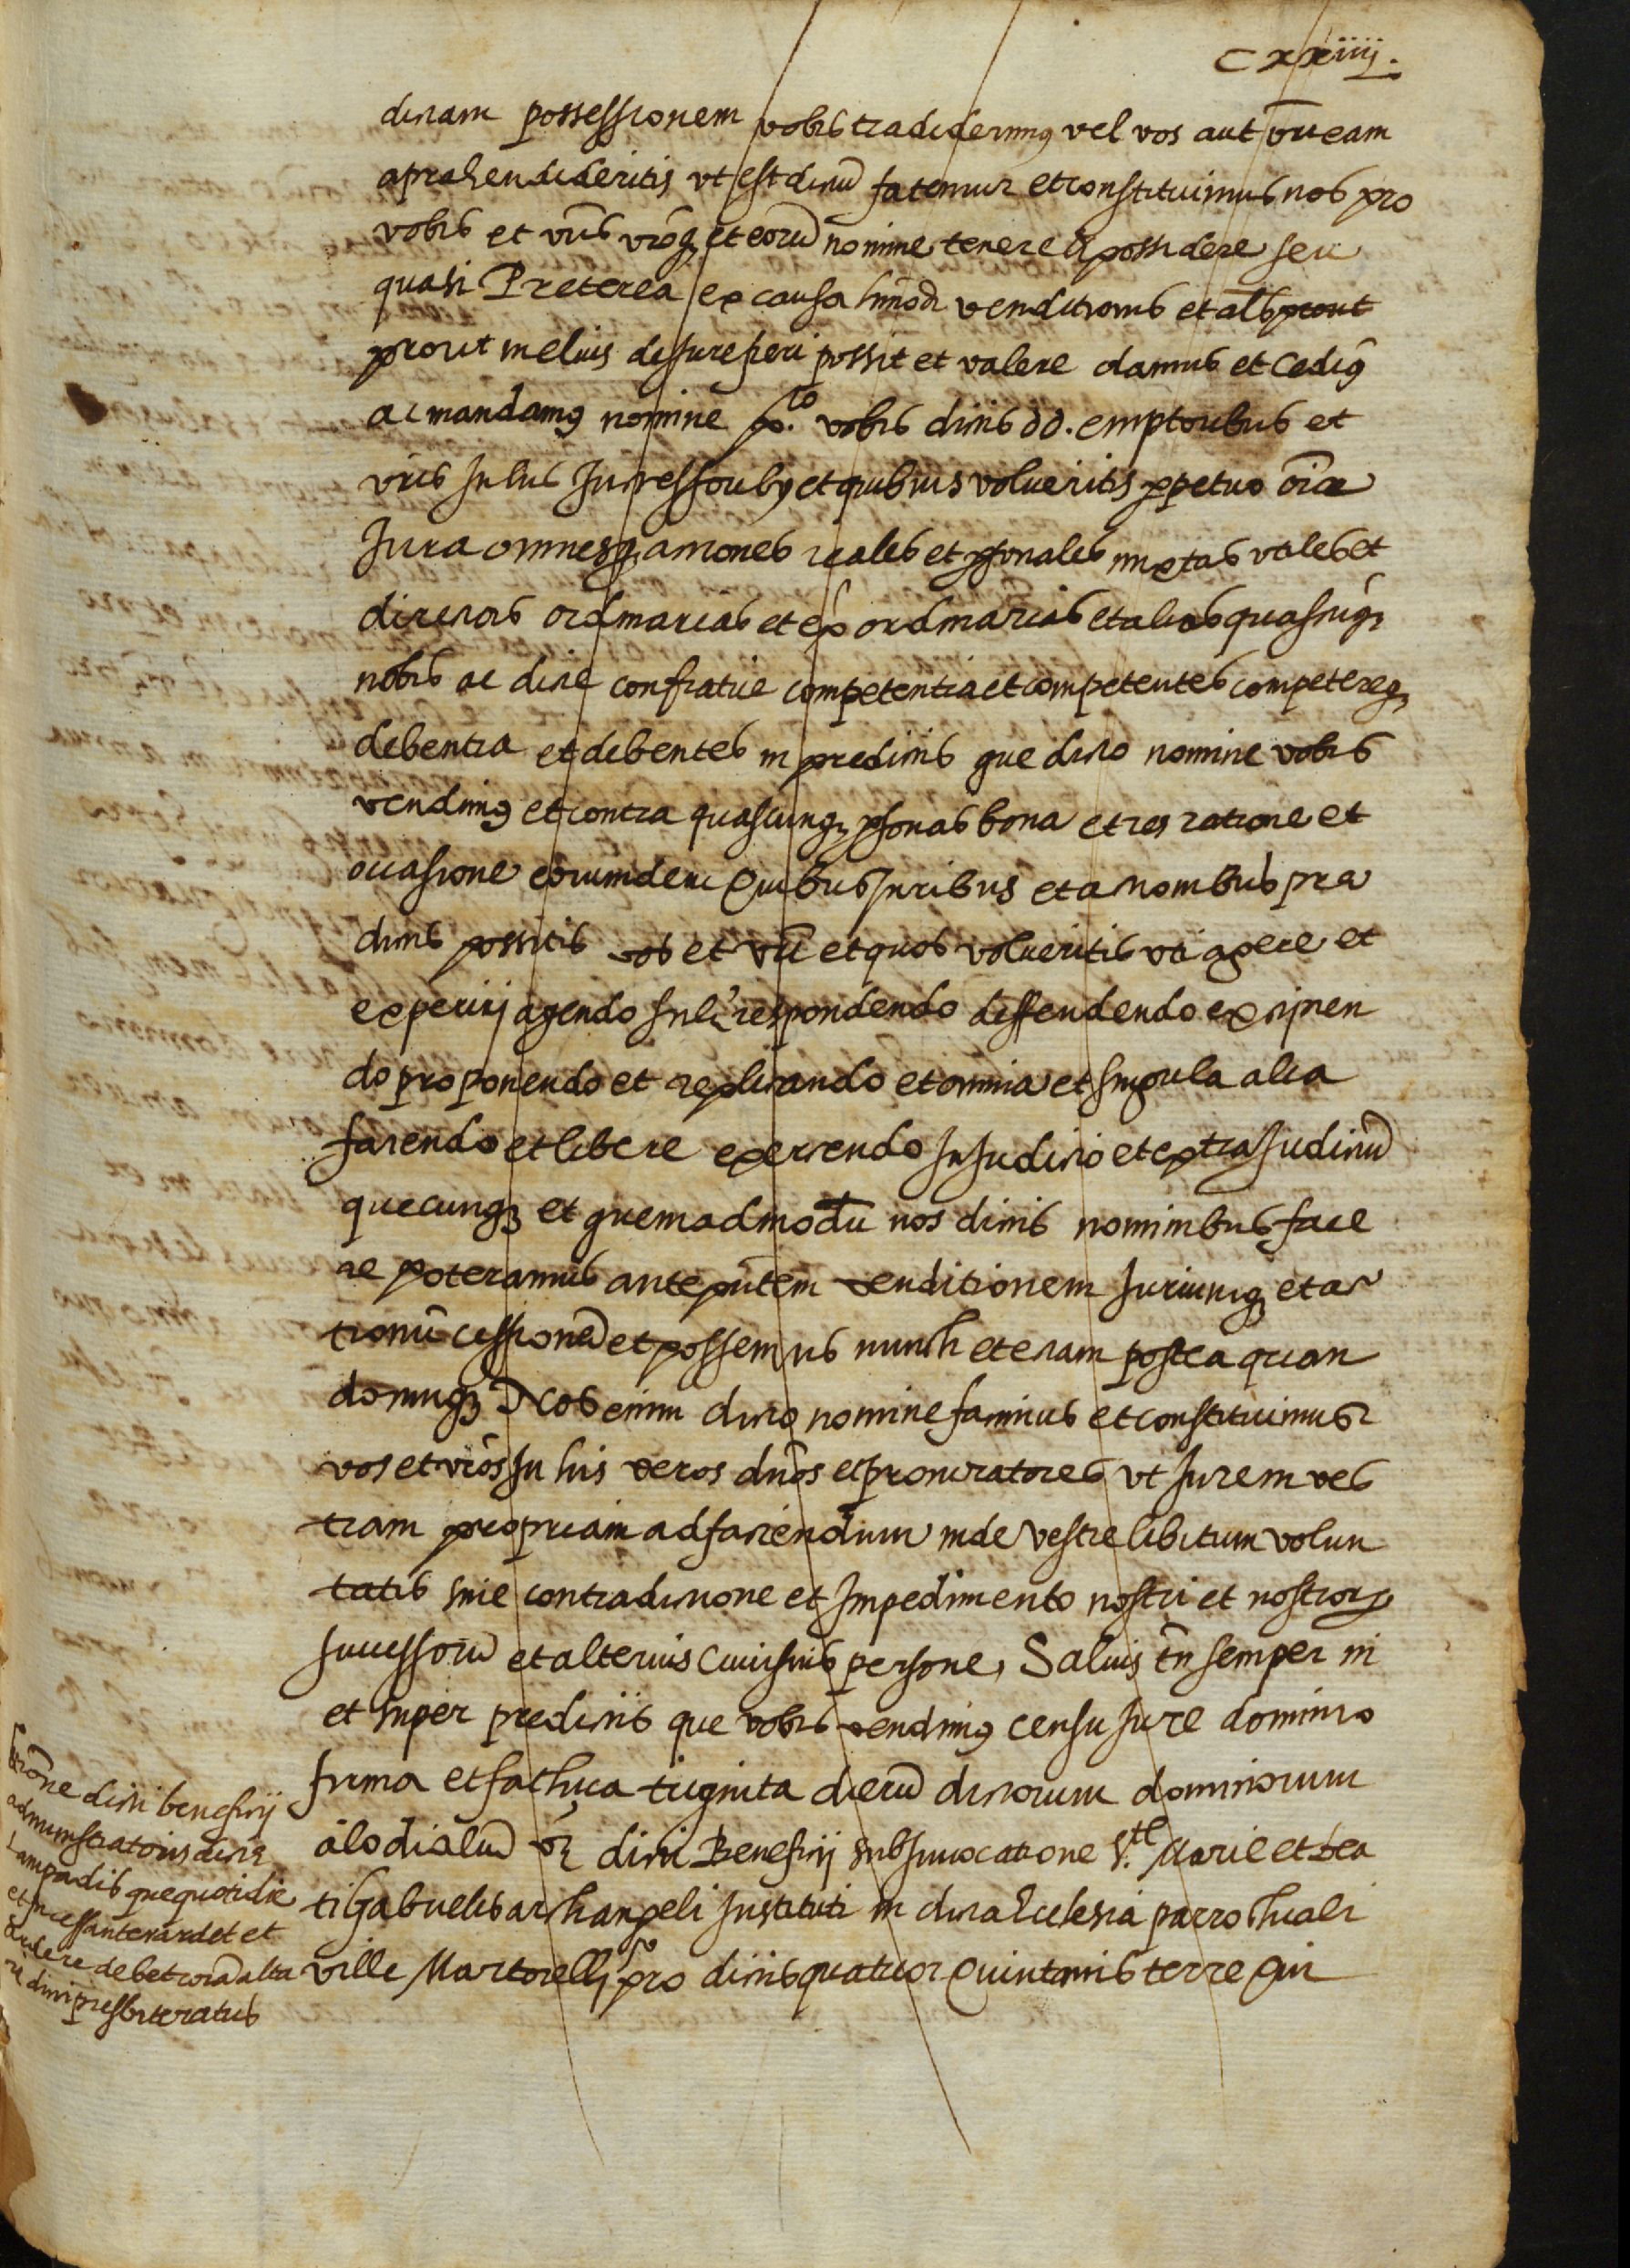 cxxiiij.
dictam possessionem vobis tradiderimus vel vos aut vri eam
aprahendideritis vt est dictum fatemur et constituimus nos pro
vobis et vris vrorq et eorum nomine tenere et possidere seu
quasi Preterea ex causa hmoi venditionis et als prout
prout melius de Jure fieri possit et valere damus et Cedimus
ac mandamus nomine pto. vobis dictis dd. emptoribus et
vris In his successoribus et quibus volueritis perpetuo oia
Jura omnesq actiones reales et personales mixtas vtiles et
directas ordinarias et extraordinarias et alias quascunq
nobis ac dicte confratrie competentia et competentes competereq
debentia et debentes in predictis que dicto nomine vobis
vendimus et contra quascunq personas bona et res ratione et
occasione eorumdem Quibus Juribus et actionibus pre
dictis possitis vos et vri et quos volueritis vti agere et
experirj agendo respondendo deffendendo excipien
do proponendo et replicando et omnia et singula alia
faciendo et libere exercendo In Judicio et extra Judicium
quecunq et quemadmodu nos dictis nominibus face
re poteramus ante pntem venditionem Juriumq et ac
tionu cessionem et possemus nunch et etiam postea quan
documq Nos enim dicto nomine facimus et constituimus
vos et vros In his veros dnos et procuratores vt In rem ves
tram propriam ad faciendum inde vestre libitum volun
tatis sine contradictione et Impedimento nostri et nostrorum
successorum et alterius Cuiusuis persone, Saluis tn semper in
et super predictis que vobis vendimus censu Jure dominio
firma et fathica triginta dierum dictorum dominorum
alodialium dicti Beneficij sub Inuocatione Ste. Marie et bea
ti Gabrielis archangeli Instituti in dicta Ecclesia parrochiali
ville Martorelli pro dictis quatuor Quintanis terre Qui
rone dicti beneficij
administratoris dicte
Lampadis que quotidie
et Incessanter ardet et
ardere debet coram alta
ri dicti presbiteratus